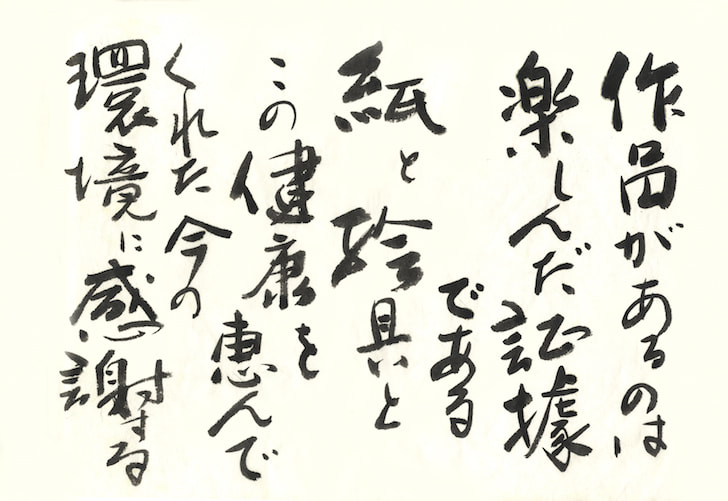 作品があるのは
楽しんだ証據
である
紙と絵具と
この健康を
恵んで
くれた今の
環境に感謝する